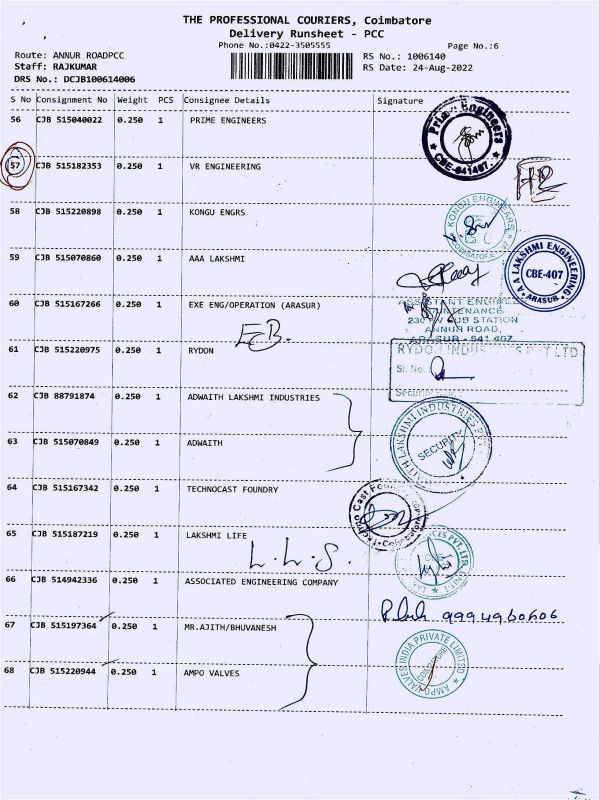 THE PROFESSIONAL COURIERS, Coimbatore
Delivery Runsheet - PCC
Phone No.:0422-3505555
Page No.:6
Route: ANNUR ROADPCC
RS No.: 1006140
Staff: RAJKUMAR
RS Date: 24-Aug-2022
DRS No.: DCJB100614006
S No Consignment No Weight PCS Consignee Details Signature
56 CJB 515040022 0.250 1 PRIME ENGINEERS
Prime Engineers
CBE-641407
57 CJB 515182353 0.250 1 VR ENGINEERING
58 CJB 515220898 0.250 1 KONGU ENGRS
KONGU ENGINEERS
59 CJB 515070860 0.250 1 AAA LAKSHMI
A A LAKSHMI ENGINEERING
CBE-407
ARASUR
60 CJB 515167266 0.250 1 EXE ENG/OPERATION (ARASUR)
ASSISTANT ENGINEER
230 KV SUB STATION
ANNUR ROAD,
ARASUR - 641 407
EB.
61 CJB 515220975 0.250 1 RYDON
RYDON INDUSTRIES PVT LTD
Sl. No.
Security
62 CJB 88791874 0.250 1 ADWAITH LAKSHMI INDUSTRIES
LAKSHMI INDUSTRIES
SECURITY
63 CJB 515070849 0.250 1 ADWAITH
64 CJB 515167342 0.250 1 TECHNOCAST FOUNDRY
65 CJB 515187219 0.250 1 LAKSHMI LIFE
L.L.S.
PVT LTD
66 CJB 514942336 0.250 1 ASSOCIATED ENGINEERING COMPANY
9994960606
67 CJB 515197364 0.250 1 MR.AJITH/BHUVANESH
68 CJB 515220944 0.250 1 AMPO VALVES
AMPO VALVES INDIA PRIVATE LIMITED
COIMBATORE